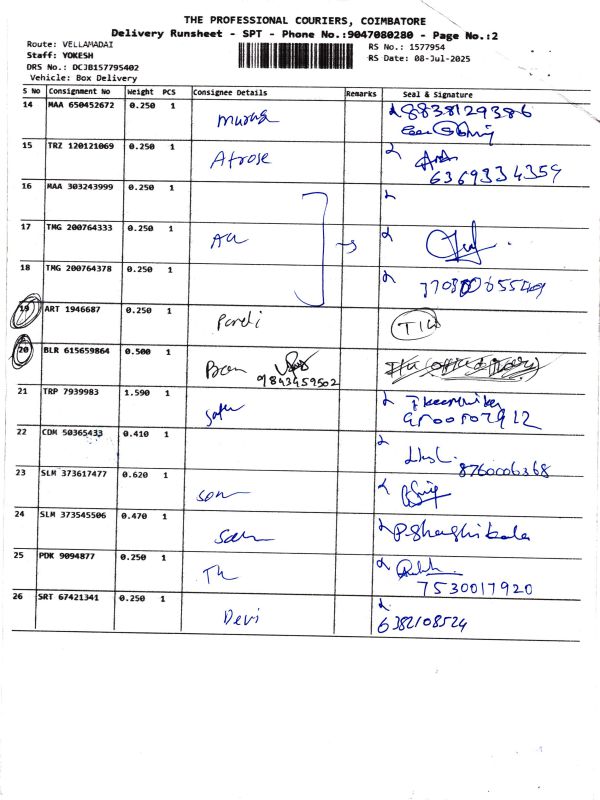 THE PROFESSIONAL COURIERS, COIMBATORE
Delivery Runsheet - SPT - Phone No.:9047080280 - Page No.:2
Route: VELLAMADAI
Staff: YOKESH
DRS No.: DCJB157795402
Vehicle: Box Delivery
RS No.: 1577954
RS Date: 08-Jul-2025
S No Consignment No Weight PCS Consignee Details Remarks Seal & Signature
14 MAA 650452672 0.250 1 8838129386
15 TRZ 120121069 0.250 1 Afrose
6369334359
16 MAA 303243999 0.250 1
17 TMG 200764333 0.250 1
18 TMG 200764378 0.250 1
19 ART 1946687 0.250 1
20 BLR 615659864 0.500 1
9843459502
21 TRP 7939983 1.590 1
22 CDM 50365433 0.410 1
8760006368
23 SLM 373617477 0.620 1
24 SLM 373545506 0.470 1 P.Shashikala
25 PDK 9094877 0.250 1
7530017920
26 SRT 67421341 0.250 1 Devi 6382108524